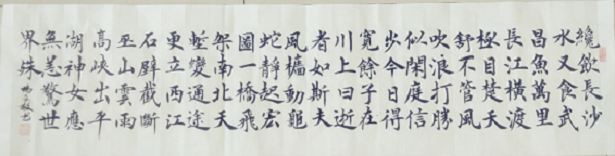 纔飲長沙
水又食武
昌魚萬里
長江橫渡
極目楚天
舒不管風
吹浪打勝
似閑庭信
步今日得
寬餘子在
川上曰逝
者如斯夫
風檣動龜
蛇靜起宏
圖一橋飛
架南北天
塹變通途
更立西江
石壁截斷
巫山雲雨
高峽出平
湖神女應
無恙驚世
界殊